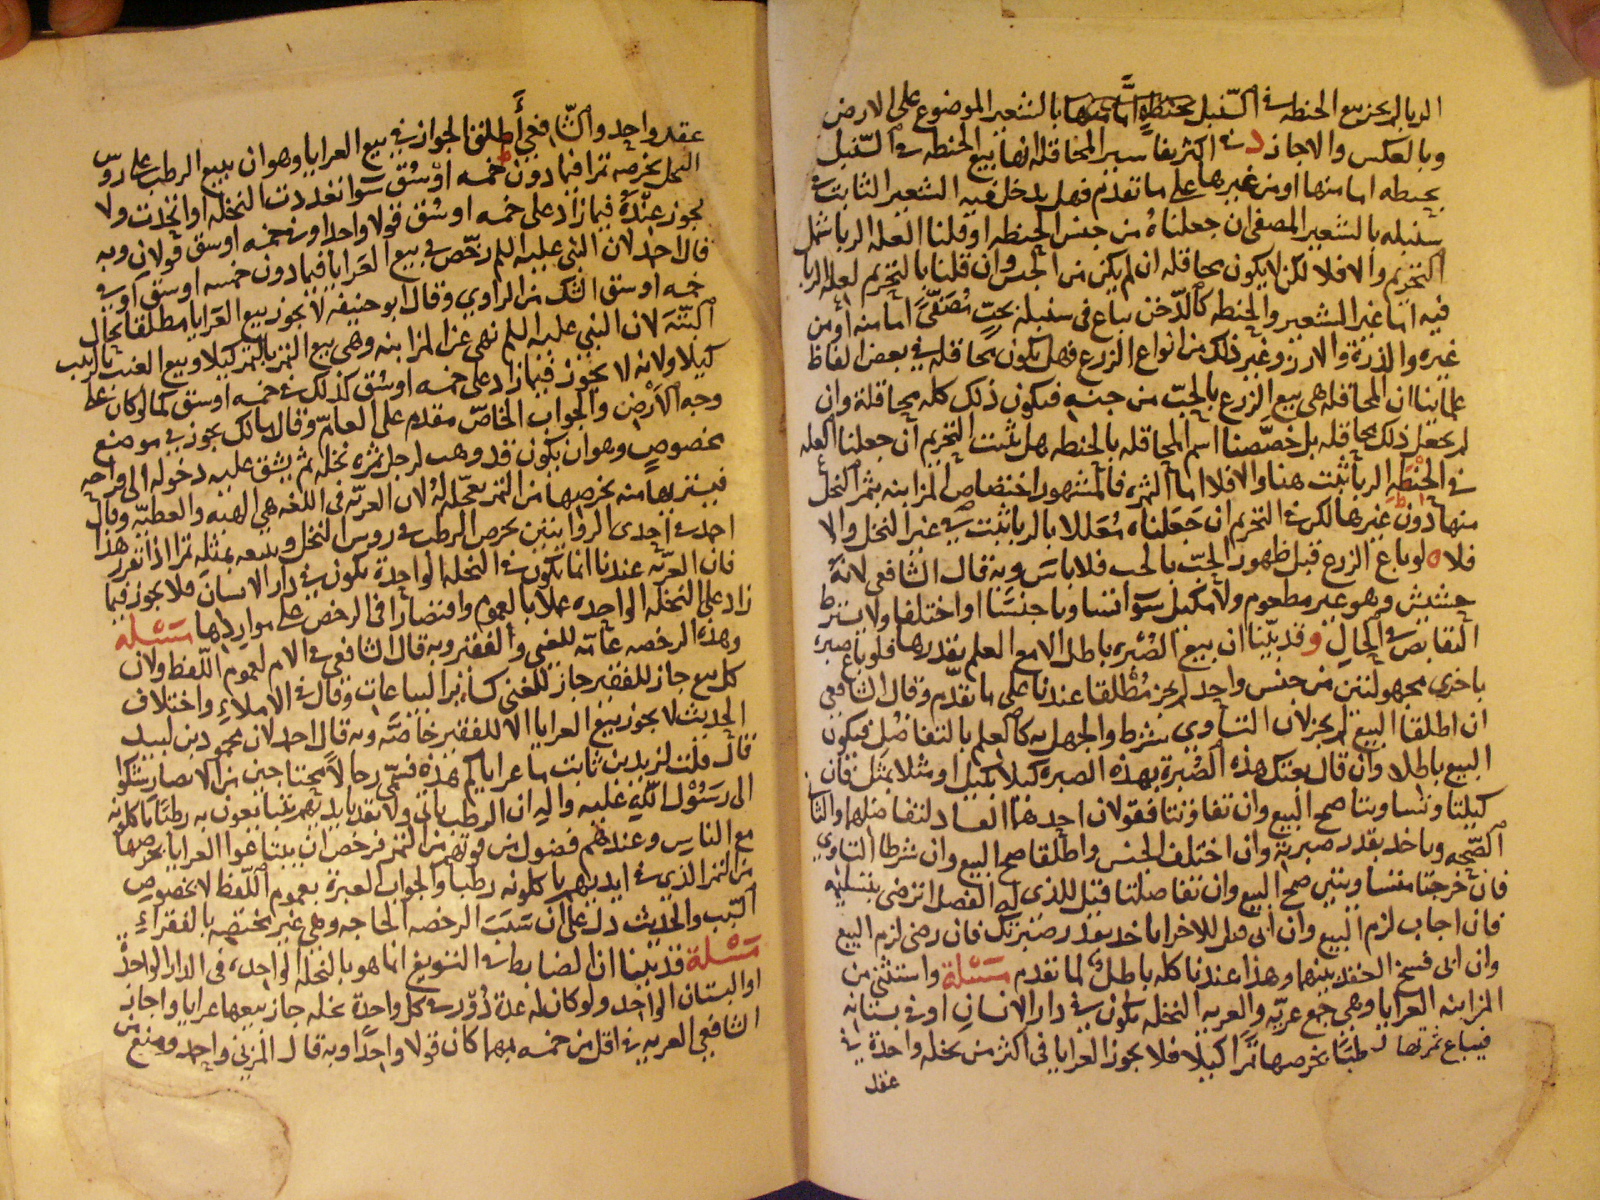 الربا لم يجز بيع الحنطه في السنبل بحنطة اما منها بالشعير الموضوع على الارض
وبالعكس والا جاز د في اكثر تفاسير المحاقله انها بيع الحنطه في السنبل
بحنطه اما منها او من غيرها على ما تقدم فهل يدخل فيه الشعير الثابت في
سنبله بالشعير المصفى ان جعلناه من جنس الحنطه او قلنا العله الربا شمل
التحريم والا فلا لكن لا يكون محاقله ان لم يكن من الجنس وان قلنا بالتحريم لعله الربا
فيه اما غير الشعير والحنطه كالدخن يباع في سنبله بحب مصفى اما منه او من
غيره والذرة والارز وغير ذلك من انواع الزرع فهل يكون محاقله في بعض الفاظ
علمائنا ان المحاقله هي بيع الزرع بالحب من جنسه فيكون ذلك كله محاقلة وان
لم يجعل ذلك محاقله بل خصصنا اسم المحاقله بالحنطه هل يثبت التحريم ان جعلنا العله
في الحنطه الربا ثبت هنا والا فلا اما الثمره فالمشهور اختصاص المزابنه بثمر النخل
منها دون غيرها لكن في التحريم ان جعلناه معللا بالربا ثبت في غير النخل والا
فلا ه لو باع الزرع قبل ظهور الحب بالحب فلا باس وبه قال الشافعي لانه
حشيش وهو غير مطعوم ولا مكيل سوا تساويا جنسا او اختلفا ولا يشترط
التقابض في الحال و قد بينا ان بيع الصبره باطل الا مع العلم بقدرها فلو باع صبره
باخرى مجهولتين من جنس واحد لم يجز مطلقا عندنا على ما تقدم وقال الشافعي
ان اطلقا البيع لم يجز لان التساوي شرط والجهل به كالعلم بالتفاضل فيكون
البيع باطلا وان قال بعتك هذه الصبرة بهذه الصبره كيلا بكيل او مثلا بمثل فان
كيلتا وتساوتا صح البيع وان تفاوتتا فقولان احدهما الفساد لتفاضلهما والثاني
الصحه وياخذ بقدر صبرته وان اختلف الجنس واطلقا صح البيع وان شرطا التساوي
فان خرجتا متساويتين صح البيع وان تفاضلتا قيل للذي له الفضل اترضى بتسليمه
فان اجاب لزم البيع وان ابى قيل للاخر اياخذ بقدر صبرتك فان رضى لزم البيع
وان ابى فسخ العقد بينهما وهذا عندنا كله باطل لما تقدم مسئلة واستثني من
المزابنه العرايا وهي جمع عريه والعريه النخله يكون في دار الانسان او في بستانه
فيباع ثمرتها رطبا بخرصها تمرا كيلا فلا يجوز العرايا في اكثر من نخله واحدة في
عقد
عقد واحد والشافعي اطلق الجواز في بيع العرايا وهو ان يبيع الرطب على روس
النخل بخرصه تمرا فيما دون خمسه اوسق سوا تعددت النخله او اتحدت ولا
يجوز عنده فيما زاد على خمسه اوسق قولا واحدا وفي خمسه اوسق قولان وبه
قال احد لان النبي عليه السلم رخص في بيع العرايا فيما دون خمسه اوسق او في
خمسه اوسق الشك من الراوي وقال ابو حنيفه لا يجوز بيع العرايا مطلقا بحال
البتة لان النبي عليه السلم نهى عن المزابنه وهي بيع التمر بالتمر كيلا وبيع العنب بالزبيب
كيلا ولانه لا يجوز فيما زاد على خمسه اوسق كذلك في خمسه اوسق كما لو كان على
وجه الارض والجواب الخاص مقدم على العام وقال مالك يجوز في موضع
مخصوص وهو ان يكون قد وهب لرجل ثمره نخله ثم يشق عليه دخوله الى قراحه
فيشتريها منه بخرصها من التمر يعجله له لان العريه في اللغه هي الهبه والعطيه وقال
احد في احدى الروايتين بخرص الرطب في روس النخل ويبيعه بمثله تمرا اذا تقرر هذا
فان العريه عندنا انما يكون في النخله الواحدة يكون في دار الانسان فلا يجوز فيما
زاد على النخله الواحده عملا بالعموم واقتصارا في الرخص على مواردها مسئله
وهذه الرخصه عامه للغني والفقير وبه قال الشافعي في الام لعموم اللفظ ولان
كل بيع جاز للفقير جاز للغني كساير البياعات وقال في الاملاء واختلاف
الحديث لا يجوز بيع العرايا الا للفقير خاصه وبه قال احد لان محمود بن لبيد
قال قلت لزيد بن ثابت ما عراياكم هذه فسمى رجالا محتاجين من الانصار شكوا
الى رسول الله عليه واله ان الرطب ياتي ولا نقد بايديهم يبتاعون به رطبا ياكلونه
مع الناس وعندهم فضول من قوتهم من التمر فرخص ان يبتاعوا العرايا بخرصها
من التمر الذي في ايديهم ياكلونه رطبا والجواب العبرة بعموم اللفظ لا بخصوص
السبب والحديث دل على ان سبب الرخصه الحاجه وهي غير مختصه بالفقراء
مسئلة قد بينا ان الضابط في التسويغ انما هو بالنخله الواحده في الدار الواحدة
او البستان الواحد ولو كان له عدة دور في كل واحدة نخله جاز بيعها عرايا واجاز
الشافعي العريه في اقل من خمسه مهما كان قولا واحدا وبه قال المزني واحد ومنع من